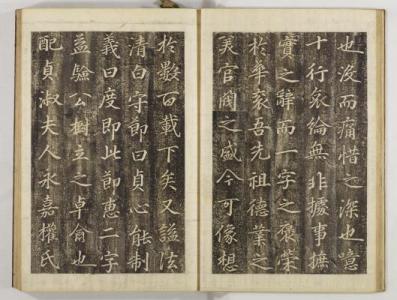 也沒而痛惜之深也噫
十行哀綸無非據事摭
實之辭而一字之褒榮
於華袞吾先祖德業之
美官閥之盛今可像想
於數百載下矣又謚法
清白守節曰貞心能制
義曰度即此節惠二字
益驗公樹立之卓爾也
配貞淑夫人永嘉權氏